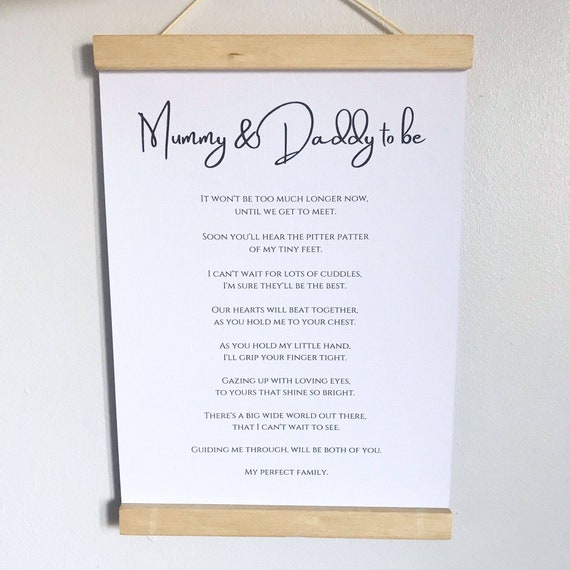 Mummy & Daddy to be
It won't be too much longer now,
until we get to meet.
Soon you'll hear the pitter patter
of my tiny feet.
I can't wait for lots of cuddles,
I'm sure they'll be the best.
Our hearts will beat together,
as you hold me to your chest.
As you hold my little hand,
I'll grip your finger tight.
Gazing up with loving eyes,
to yours that shine so bright.
There's a big wide world out there,
that I can't wait to see.
Guiding me through, will be both of you.
My perfect family.